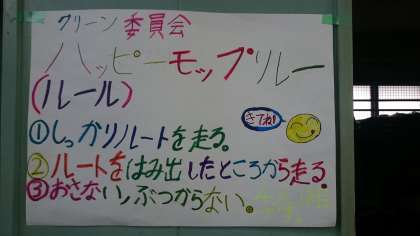 クリーン委員会
ハッピーモップリレー
(ルール)
①しっかりルートを走る。
きてね!
②ルートをはみ出したところから走る。
③おさない、ぶつからない。